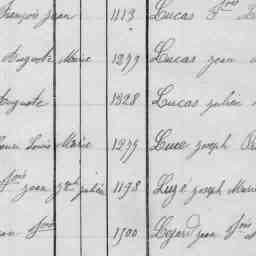 françois jean 1113 Lucas fois
Auguste Marie 1277 Lucas jean
Auguste 1328 Lucas julien
Louis Marie 1275 Luce joseph
fois jean julien 1198 Luzé joseph Marie
fois 1500 Lejard jean fois